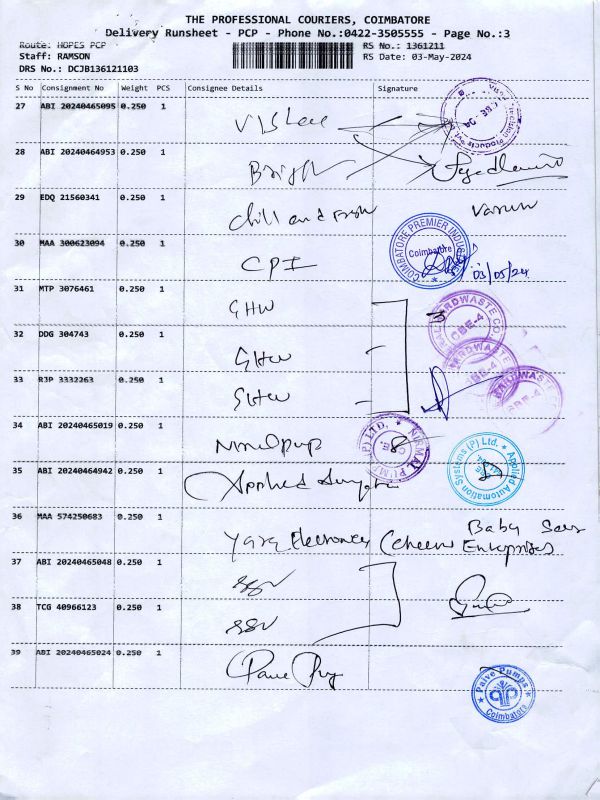 THE PROFESSIONAL COURIERS, COIMBATORE
Delivery Runsheet - PCP - Phone No.:0422-3505555 - Page No.:3
Route: HOPES PCP RS No.: 1361211
Staff: RAMSON RS Date: 03-May-2024
DRS No.: DCJB136121103
S No Consignment No Weight PCS Consignee Details Signature
27 ABI 20240465095 0.250 1
28 ABI 20240464953 0.250 1
29 EDQ 21560341 0.250 1 Chill and Fresh Varun
30 MAA 300623094 0.250 1 CPI COIMBATORE PREMIER INDUS Coimbatore 03/05/24
31 MTP 3076461 0.250 1 GHW 3
32 DDG 304743 0.250 1 GHW HARDWASTE CO. CBE-4
33 RJP 3332263 0.250 1 GHW
34 ABI 20240465019 0.250 1
35 ABI 20240464942 0.250 1 Applied Applied Automation Systems (P) Ltd.
36 MAA 574250683 0.250 1 Electronics (Cheen Enterprises Baby
37 ABI 20240465048 0.250 1
38 TCG 40966123 0.250 1
39 ABI 20240465024 0.250 1
Paive Pumps Coimbatore